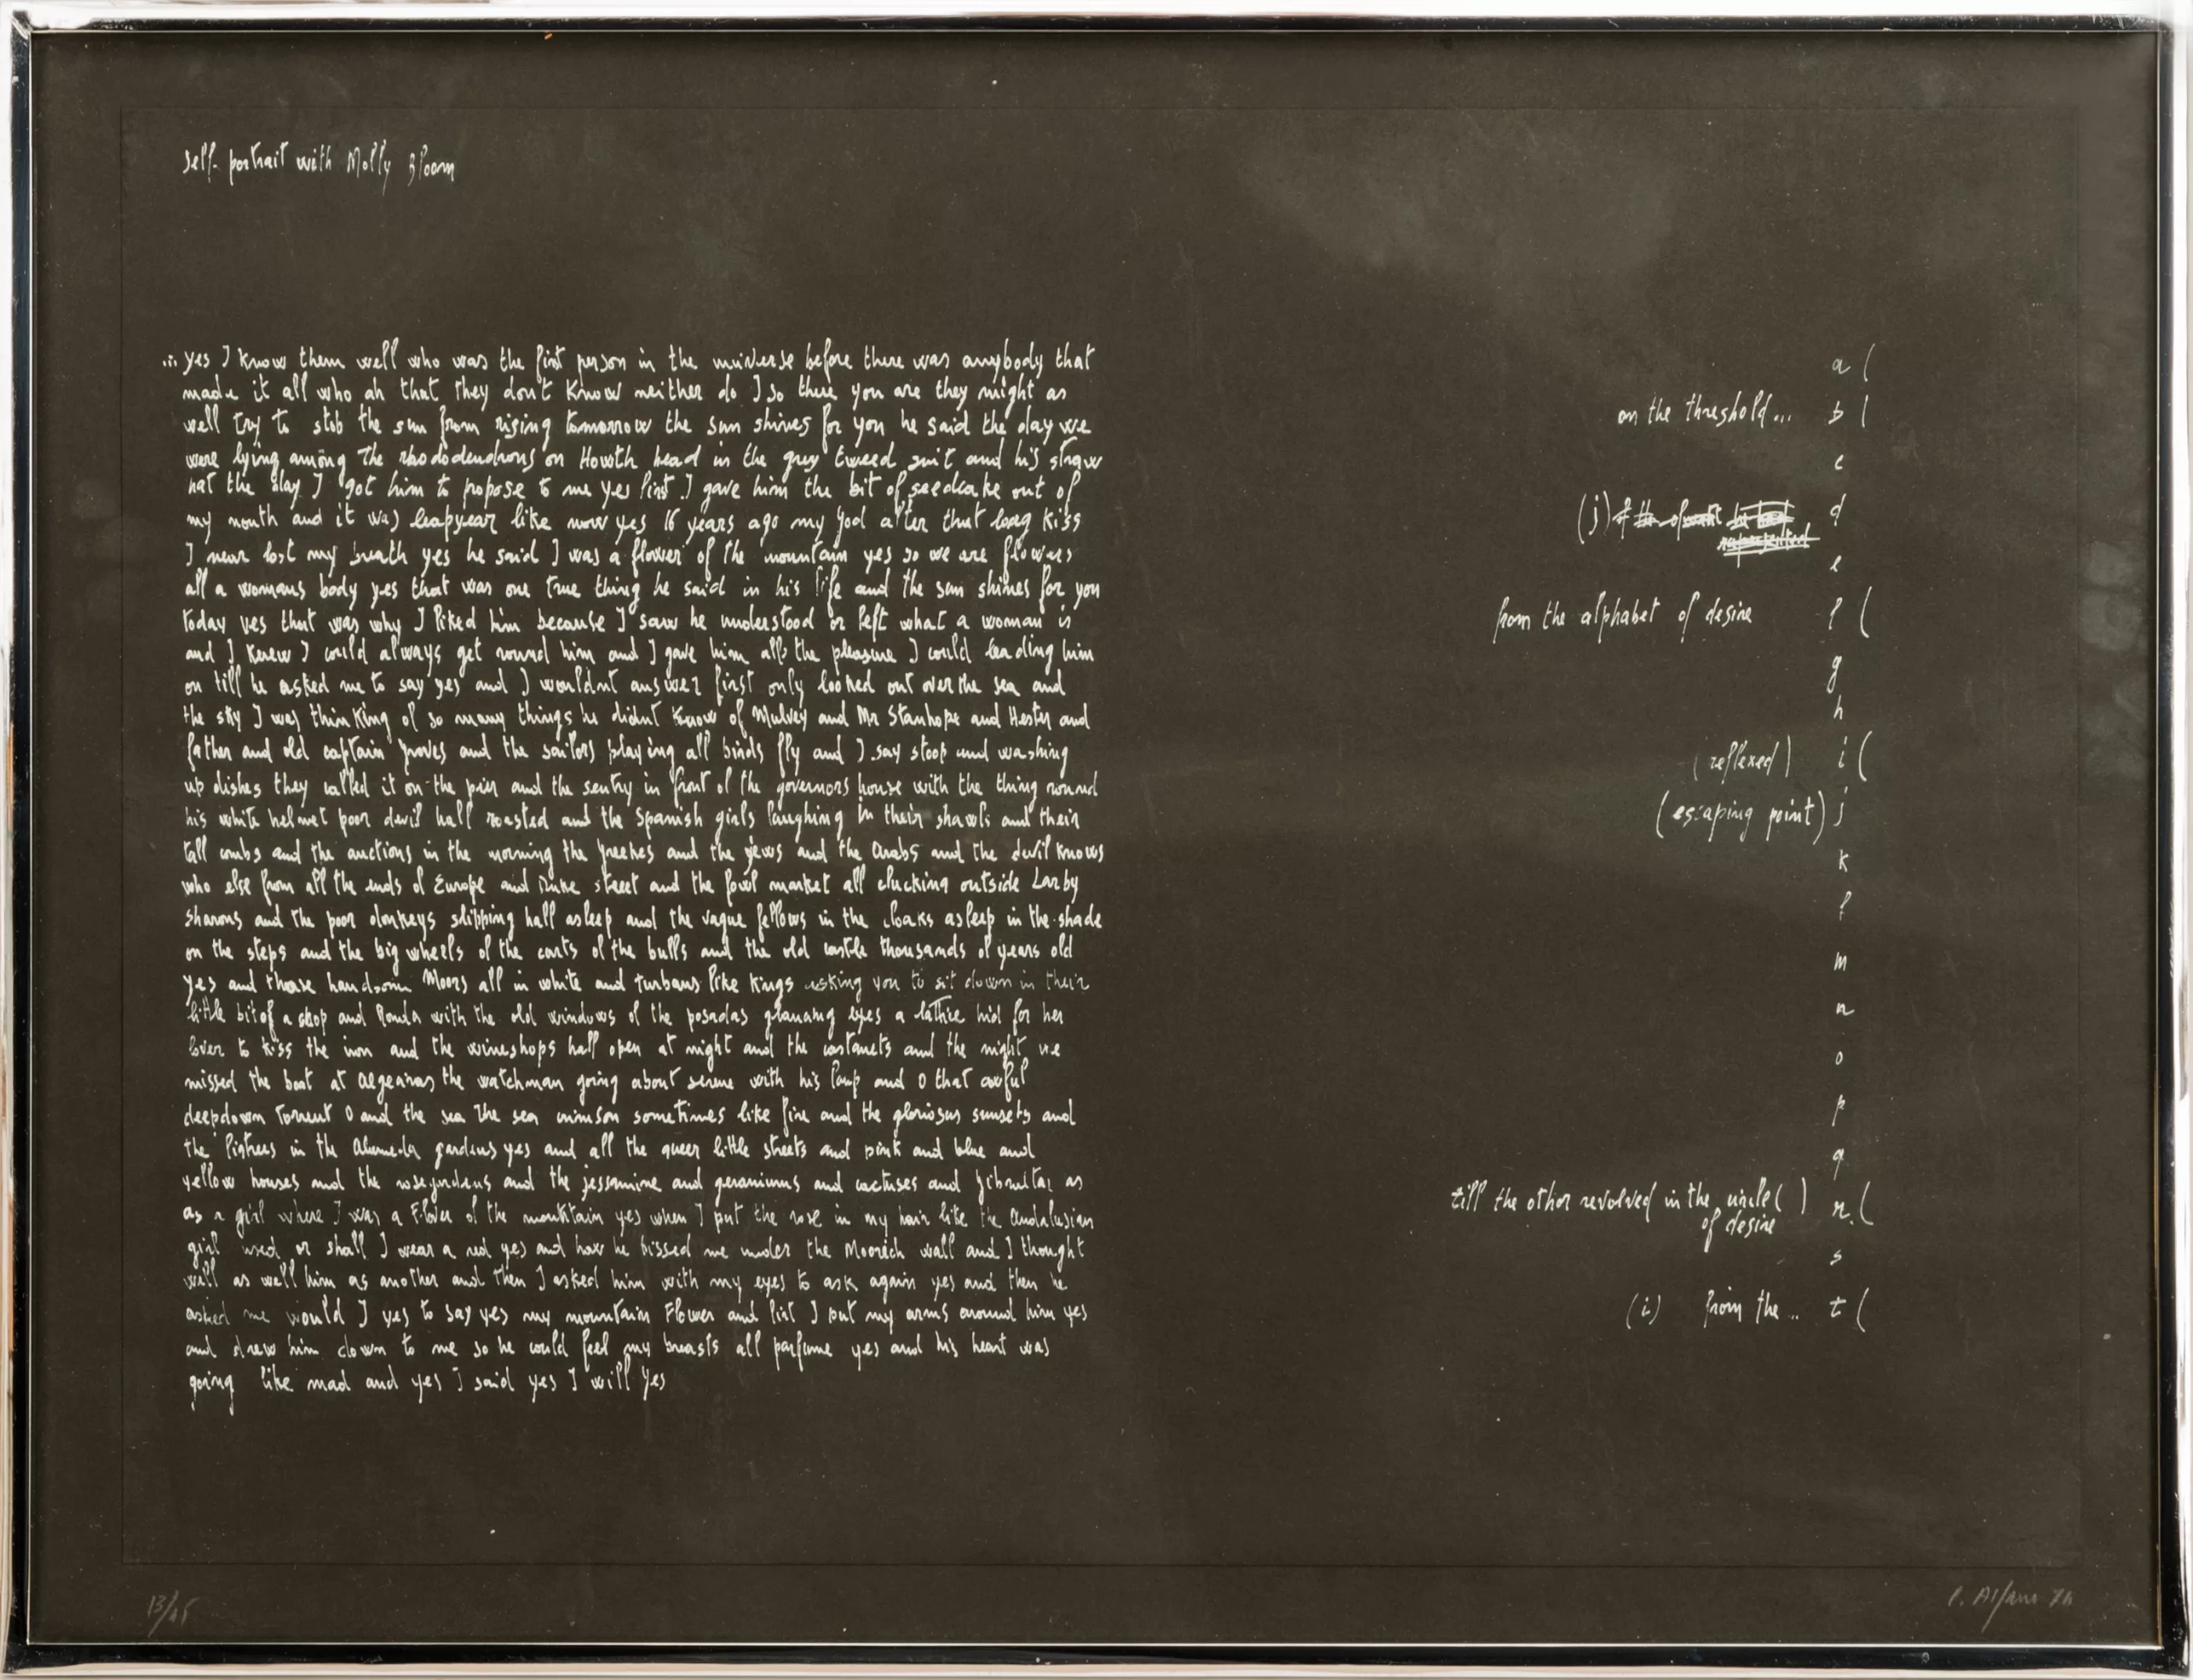 self-portrait with Molly Bloom
... yes I know them well who was the first person in the universe before there was anybody that
made it all who ah that they don't know neither do I so there you are they might as
well try to stob the sun from rising tomorrow the sun shines for you he said the day we
were lying among the rhododendrons on Howth head in the grey tweed suit and his straw
hat the day I got him to propose to me yes first I gave him the bit of seedcake out of
my mouth and it was leapyear like now yes 16 years ago my god after that long kiss
I near lost my breath yes he said I was a flower of the mountain yes so we are flowers
all a womans body yes that was one true thing he said in his life and the sun shines for you
today yes that was why I liked him because I saw he understood or felt what a woman is
and I knew I could always get round him and I gave him all the pleasure I could leading him
on till he asked me to say yes and I wouldnt answer first only looked out over the sea and
the sky I was thinking of so many things he didnt know of Mulvey and Mr Stanhope and Hester and
father and old captain groves and the sailors playing all birds fly and I say stoop and washing
up dishes they called it on the pier and the sentry in front of the governors house with the thing round
his white helmet poor devil half roasted and the Spanish girls laughing in their shawls and their
tall combs and the auctions in the morning the greekes and the jews and the Arabs and the devil knows
who else from all the ends of Europe and Duke street and the fowl market all clucking outside Larby
sharons and the poor donkeys slipping half asleep and the vague fellows in the cloaks asleep in the shade
on the steps and the big wheels of the carts of the bulls and the old castle thousands of years old
yes and those handsome Moors all in white and turbans like kings asking you to sit down in their
little bit of a shop and Ronda with the old windows of the posadas glancing eyes a lattice hid for her
lover to kiss the iron and the wineshops half open at night and the castanets and the night we
missed the boat at Algeciras the watchman going about serene with his lamp and O that awful
deepdown torrent O and the sea the sea crimson sometimes like fire and the glorious sunsets and
the figtrees in the Alameda gardens yes and all the queer little streets and pink and blue and
yellow houses and the rosegardens and the jessamine and geraniums and cactuses and Gibraltar as
as a girl where I was a Flower of the mountain yes when I put the rose in my hair like the Andalusian
girl used or shall I wear a red yes and how he kissed me under the Moorish wall and I thought
well as well him as another and then I asked him with my eyes to ask again yes and then he
asked me would I yes to say yes my mountain Flower and first I put my arms around him yes
and drew him down to me so he could feel my breasts all parfume yes and his heart was
going like mad and yes I said yes I will yes
a (
on the threshold... b (
c
(j) d
e
from the alphabet of desire f (
g
h
(reflexed) i (
(escaping point) j
k
l
m
n
o
p
q
till the other revolved in the uncle ( ) r. (
of desire
s
(i) from the .. t (
13/45
C. Alfano 76